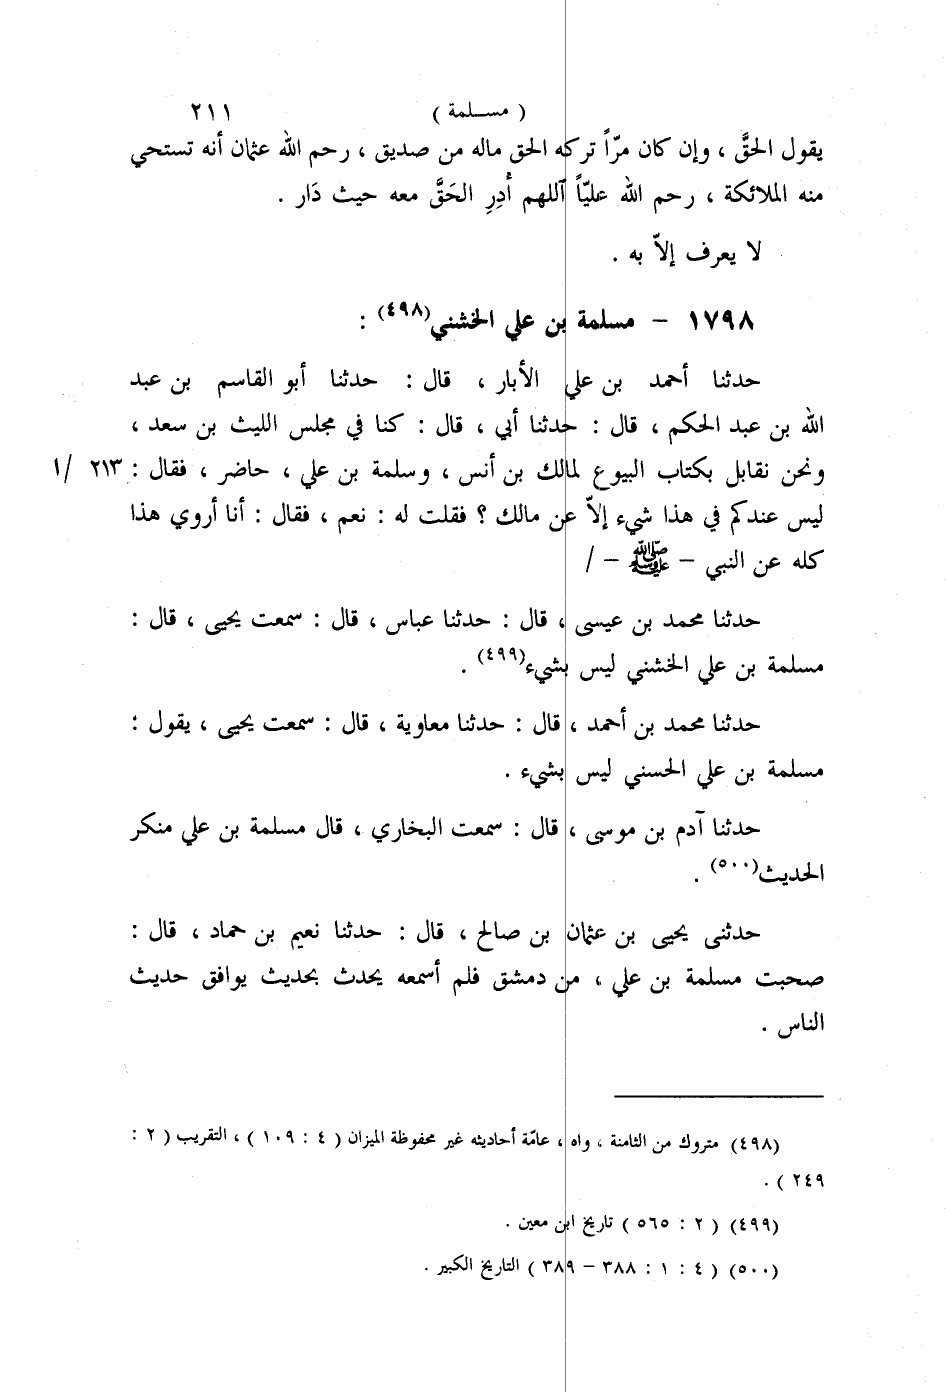 ( مسلمة ) ٢١١
يقول الحقَّ ، وإن كان مرّاً تركه الحق ماله من صديق ، رحم الله عثمان أنه تستحي
منه الملائكة ، رحم الله عليّاً آللهم أدِرِ الحَقَّ معه حيث دَار .
لا يعرف إلاّ به .
١٧٩٨ – مسلمة بن علي الخشني(٤٩٨) :
حدثنا أحمد بن علي الأبار ، قال : حدثنا أبو القاسم بن عبد
الله بن عبد الحكم ، قال : حدثنا أبي ، قال : كنا في مجلس الليث بن سعد ،
ونحن نقابل بكتاب البيوع لمالك بن أنس ، وسلمة بن علي ، حاضر ، فقال : ٢١٣ /١
ليس عندكم في هذا شيء إلاّ عن مالك ؟ فقلت له : نعم ، فقال : أنا أروي هذا
كله عن النبي – ﷺ – /
حدثنا محمد بن عيسى ، قال : حدثنا عباس ، قال : سمعت يحيى ، قال :
مسلمة بن علي الخشني ليس بشيء(٤٩٩) .
حدثنا محمد بن أحمد ، قال : حدثنا معاوية ، قال : سمعت يحيى ، يقول :
مسلمة بن علي الحسني ليس بشيء .
حدثنا آدم بن موسى ، قال : سمعت البخاري ، قال مسلمة بن علي منكر
الحديث(٥٠٠) .
حدثنى يحيى بن عثمان بن صالح ، قال : حدثنا نعيم بن حماد ، قال :
صحبت مسلمة بن علي ، من دمشق فلم أسمعه يحدث بحديث يوافق حديث
الناس .
(٤٩٨) متروك من الثامنة ، واه ، عامّة أحاديثه غير محفوظة الميزان ( ٤ : ١٠٩ ) ، التقريب ( ٢ :
٢٤٩ ) .
(٤٩٩) ( ٢ : ٥٦٥ ) تاريخ ابن معين .
(٥٠٠) ( ٤ : ١ : ٣٨٨ – ٣٨٩ ) التاريخ الكبير .